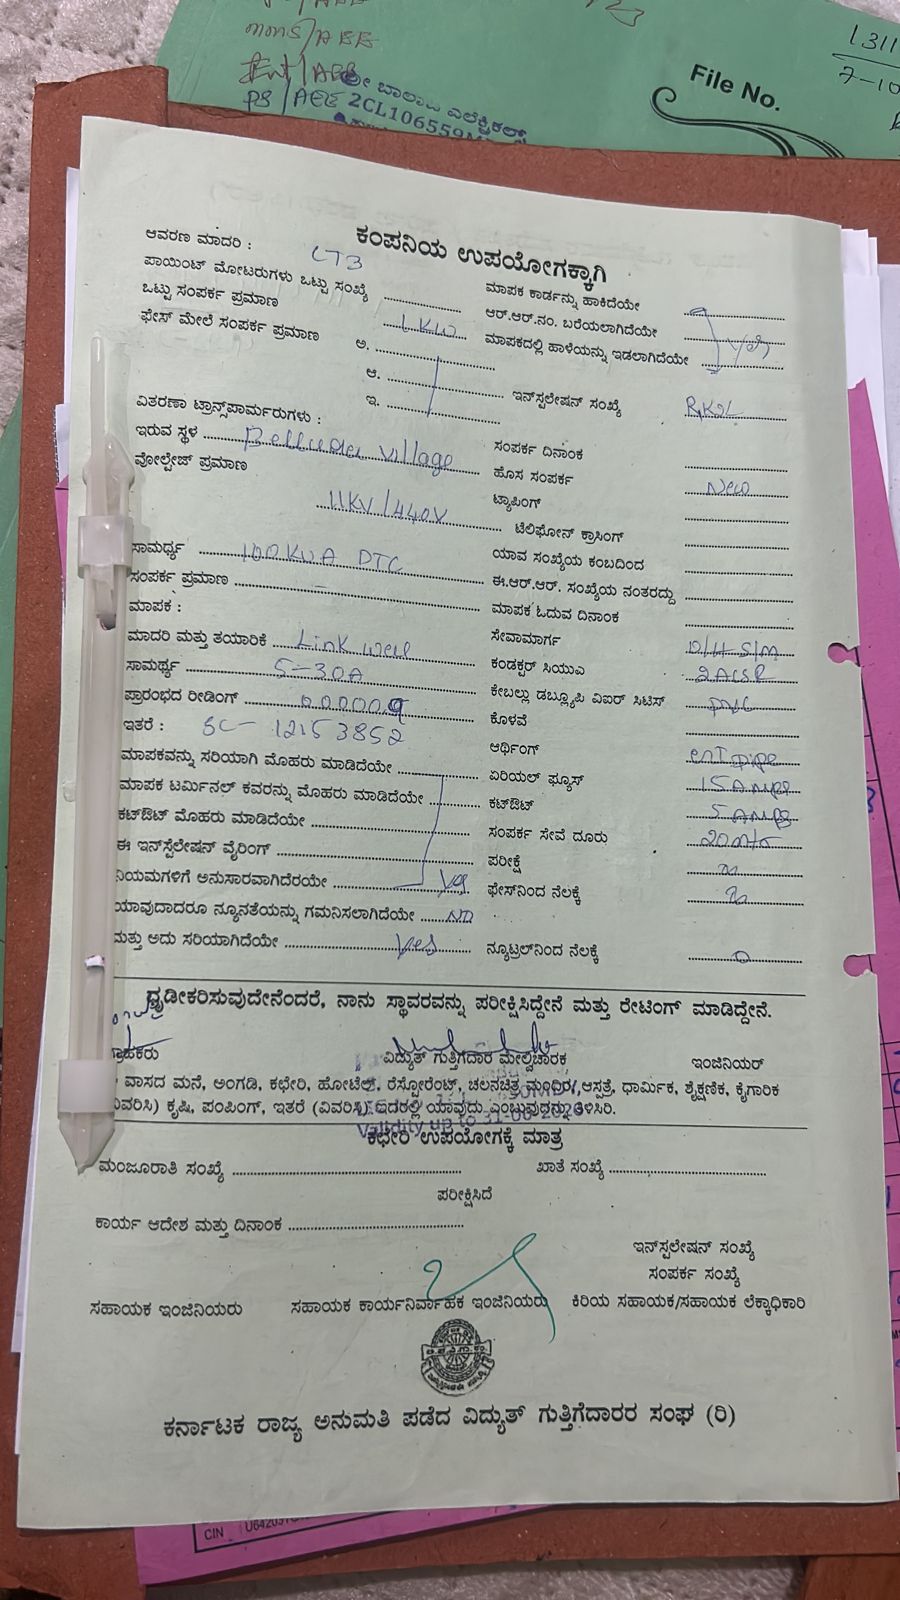 mons/AEE
Ent/AEE
PS/AEE
ಶ್ರೀ ಬಾಲಾಜಿ ಎಲೆಕ್ಟ್ರಿಕಲ್ಸ್
2CL106559
File No.
1311
7-10
ಕಂಪನಿಯ ಉಪಯೋಗಕ್ಕಾಗಿ
ಆವರಣ ಮಾದರಿ : LT3
ಪಾಯಿಂಟ್ ಮೋಟರುಗಳು ಒಟ್ಟು ಸಂಖ್ಯೆ
ಒಟ್ಟು ಸಂಪರ್ಕ ಪ್ರಮಾಣ 1KW
ಫೇಸ್ ಮೇಲೆ ಸಂಪರ್ಕ ಪ್ರಮಾಣ ಅ.
ಆ.
ಇ.
ವಿತರಣಾ ಟ್ರಾನ್ಸ್‌ಪಾರ್ಮರುಗಳು :
ಇರುವ ಸ್ಥಳ village
ವೋಲ್ಟೇಜ್ ಪ್ರಮಾಣ
11KV/440V
ಸಾಮರ್ಧ್ಯ 100KVA DTC
ಸಂಪರ್ಕ ಪ್ರಮಾಣ
ಮಾಪಕ :
ಮಾದರಿ ಮತ್ತು ತಯಾರಿಕೆ Link well
ಸಾಮರ್ಥ್ಯ 5-30A
ಪ್ರಾರಂಭದ ರೀಡಿಂಗ್
ಇತರೆ : SC- 12153852
ಮಾಪಕವನ್ನು ಸರಿಯಾಗಿ ಮೊಹರು ಮಾಡಿದೆಯೇ
ಮಾಪಕ ಟರ್ಮಿನಲ್ ಕವರನ್ನು ಮೊಹರು ಮಾಡಿದೆಯೇ
ಕಟ್‌ಔಟ್ ಮೊಹರು ಮಾಡಿದೆಯೇ
ಈ ಇನ್‌ಸ್ಟೆಲೇಷನ್ ವೈರಿಂಗ್
ನಿಯಮಗಳಿಗೆ ಅನುಸಾರವಾಗಿದೆರಯೇ Yes
ಯಾವುದಾದರೂ ನ್ಯೂನತೆಯನ್ನು ಗಮನಿಸಲಾಗಿದೆಯೇ NO
ಮತ್ತು ಅದು ಸರಿಯಾಗಿದೆಯೇ Yes
ಮಾಪಕ ಕಾರ್ಡನ್ನು ಹಾಕಿದೆಯೇ
ಆರ್.ಆರ್.ನಂ. ಬರೆಯಲಾಗಿದೆಯೇ
ಮಾಪಕದಲ್ಲಿ ಹಾಳೆಯನ್ನು ಇಡಲಾಗಿದೆಯೇ Yes
ಇನ್‌ಸ್ಟಲೇಷನ್ ಸಂಖ್ಯೆ
ಸಂಪರ್ಕ ದಿನಾಂಕ
ಹೊಸ ಸಂಪರ್ಕ New
ಟ್ಯಾಪಿಂಗ್
ಟೆಲಿಫೋನ್ ಕ್ರಾಸಿಂಗ್
ಯಾವ ಸಂಖ್ಯೆಯ ಕಂಬದಿಂದ
ಈ.ಆರ್.ಆರ್. ಸಂಖ್ಯೆಯ ನಂತರದ್ದು
ಮಾಪಕ ಓದುವ ದಿನಾಂಕ
ಸೇವಾಮಾರ್ಗ O/H S/M
ಕಂಡಕ್ಟರ್ ಸಿಯುಎ 2ACSR
ಕೇಬಲ್ಲು ಡಬ್ಲ್ಯೂಪಿ ವಿಐರ್ ಸಿಟಿಸ್ PVC
ಕೊಳವೆ
ಆರ್ಥಿಂಗ್ GI pipe
ಏರಿಯಲ್ ಫ್ಯೂಸ್ 15 Amps
ಕಟ್‌ಔಟ್ 5 Amps
ಸಂಪರ್ಕ ಸೇವೆ ದೂರು 20mts
ಪರೀಕ್ಷೆ
ಫೇಸ್‌ನಿಂದ ನೆಲಕ್ಕೆ
ನ್ಯೂಟ್ರಲ್‌ನಿಂದ ನೆಲಕ್ಕೆ 0
ಧೃಡೀಕರಿಸುವುದೇನೆಂದರೆ, ನಾನು ಸ್ಥಾವರವನ್ನು ಪರೀಕ್ಷಿಸಿದ್ದೇನೆ ಮತ್ತು ರೇಟಿಂಗ್ ಮಾಡಿದ್ದೇನೆ.
ಗ್ರಾಹಕರು ವಿದ್ಯುತ್ ಗುತ್ತಿಗೆದಾರ ಮೇಲ್ವಿಚಾರಕ ಇಂಜಿನಿಯರ್
ವಾಸದ ಮನೆ, ಅಂಗಡಿ, ಕಛೇರಿ, ಹೋಟೆಲ್, ರೆಸ್ಟೋರೆಂಟ್, ಚಲನಚಿತ್ರ ಮಂಧಿರ, ಆಸ್ಪತ್ರೆ, ಧಾರ್ಮಿಕ, ಶೈಕ್ಷಣಿಕ, ಕೈಗಾರಿಕ
(ವಿವರಿಸಿ) ಕೃಷಿ, ಪಂಪಿಂಗ್, ಇತರೆ (ವಿವರಿಸಿ) ಇದರಲ್ಲಿ ಯಾವುದು ಎಂಬುವುದನ್ನು ತಿಳಿಸಿರಿ.
Validity up to 31-08-2026
ಕಛೇರಿ ಉಪಯೋಗಕ್ಕೆ ಮಾತ್ರ
ಮಂಜೂರಾತಿ ಸಂಖ್ಯೆ ಖಾತೆ ಸಂಖ್ಯೆ
ಪರೀಕ್ಷಿಸಿದೆ
ಕಾರ್ಯ ಆದೇಶ ಮತ್ತು ದಿನಾಂಕ
ಇನ್‌ಸ್ಟಲೇಷನ್ ಸಂಖ್ಯೆ
ಸಂಪರ್ಕ ಸಂಖ್ಯೆ
ಸಹಾಯಕ ಇಂಜಿನಿಯರು ಸಹಾಯಕ ಕಾರ್ಯನಿರ್ವಾಹಕ ಇಂಜಿನಿಯರು ಕಿರಿಯ ಸಹಾಯಕ/ಸಹಾಯಕ ಲೆಕ್ಕಾಧಿಕಾರಿ
ಕರ್ನಾಟಕ ರಾಜ್ಯ ಅನುಮತಿ ಪಡೆದ ವಿದ್ಯುತ್ ಗುತ್ತಿಗೆದಾರರ ಸಂಘ (ರಿ)
CIN